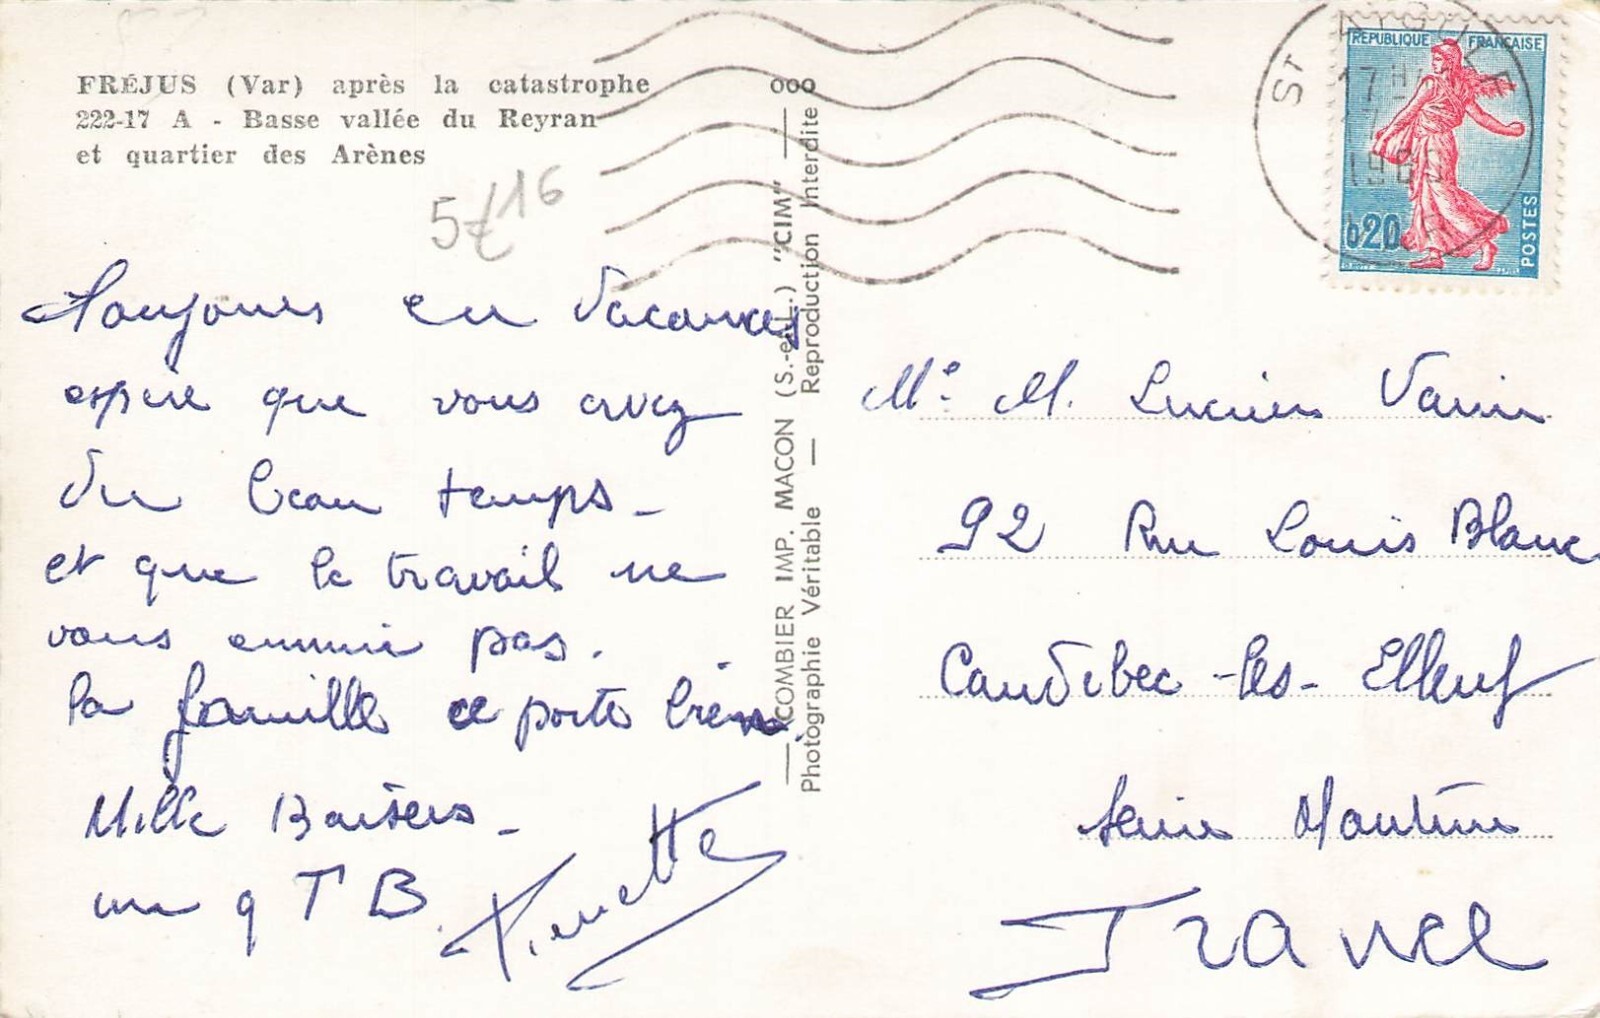 FRÉJUS (Var) après la catastrophe
222-17 A - Basse vallée du Reyran
et quartier des Arènes
5€ 16
Toujours en vacances
espère que vous avez
du beau temps -
et que le travail ne
vous ennuie pas.
la famille se porte bien.
Mille Baisers -
un q T B.
COMBIER IMP. MACON (S.-et-L.) "CIM"
Photographie Véritable — Reproduction Interdite
ooo
ST AYGULF
17 H
REPUBLIQUE FRANÇAISE
0,20
POSTES
Me. M. Lucien Varin
92 Rue Louis Blanc
Caudebec-les-Elbeuf
Seine Maritime
France